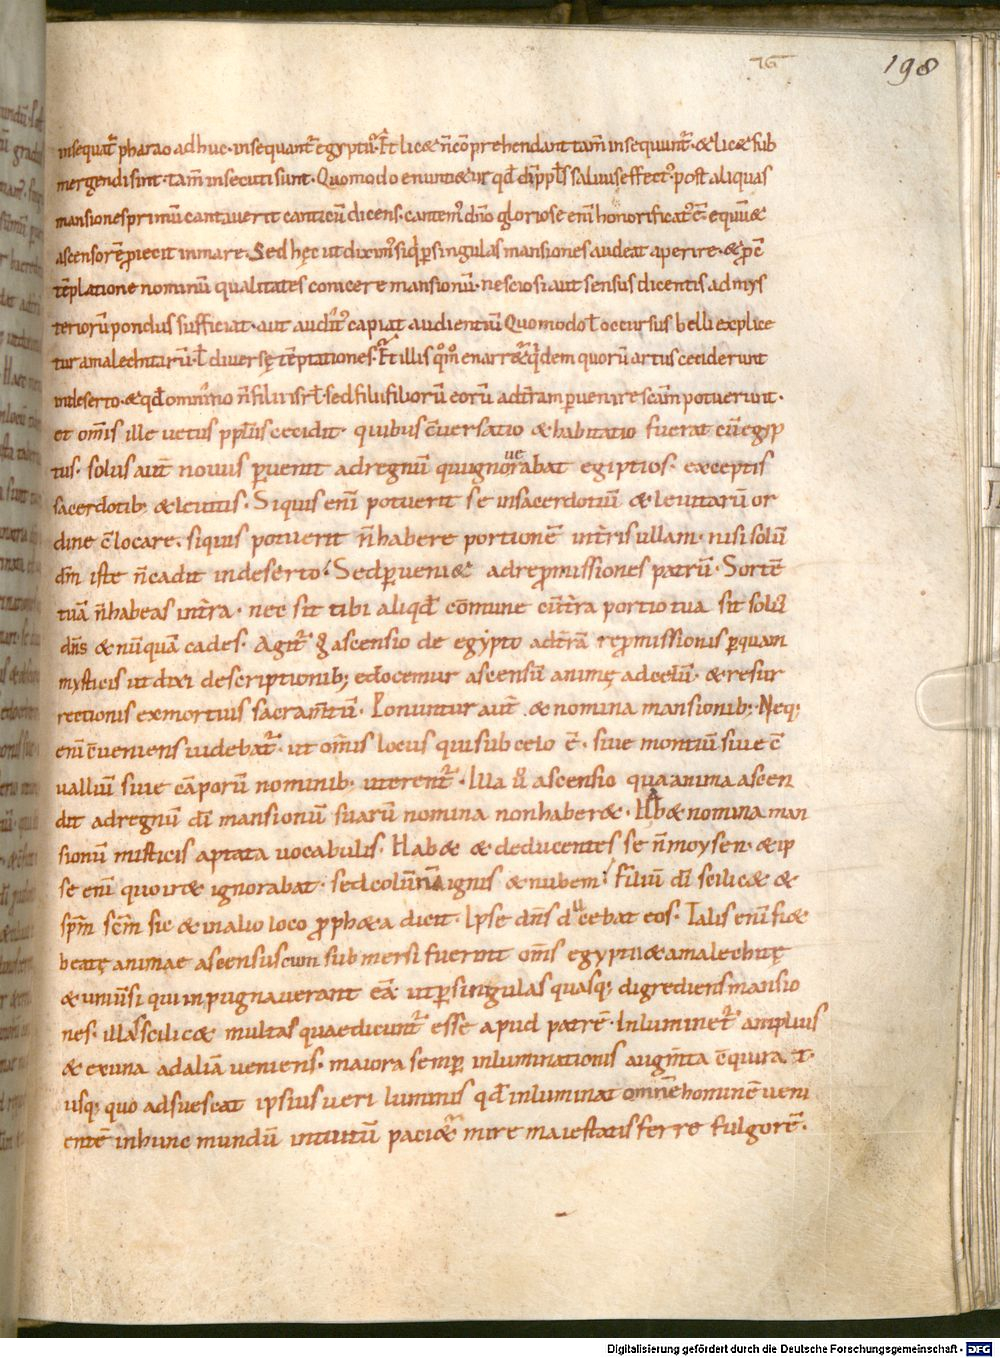 198
insequat᷑ pharao adhuc· insequant᷑ egyptii· Et licet n̄ cōprehendant tam̄ insequunt᷑· & licet sub
mergendi sint· tam̄ insecuti sunt· Quomodo &
qđ dī ppl̄s saluus effect᷒ post aliquas
mansiones primū cantauerit canticū dicens· cantem᷒ dn̄o gloriose enī honorificat᷒ ē· equū &
ascensorē piecit in mare· Sed hęc ut dixim᷒ siq̇s p singulas mansiones audeat aperire· & p c̄
tēplatione nominū qualitates conicere mansionū· nescio si aut sensus dicentis ad mys
teriorū pondus sufficiat· aut audit᷒ capiat audientiū Quomodo l̄ occursus belli explice
tur amalechitarū· l̄ diuersę tēptationes· Et illis qm̊ enarret᷑ qdem quorū artus ceciderunt
in deserto· & qđ omnimo n̄ filii isrl̄ sed filii filiorū eorū ad tr̄am puenire scām potuerunt·
et om̄is ille uetus ppl̄us cecidit· quibus c̄uersatio & habitatio fuerat cū egyp
tiis· solus aut̄ nouus puenit ad regnū qui ignorabat egiptios· exceptis
sacerdotib; & leuitis· Siquis enī potuerit se in sacerdotiū & leuitarū or
dine c̄locare· siquis potuerit n̄ habere portionē in tr̄is ullam· nisi solū
dm̄ iste n̄ cadit in deserto· Sed pueniet ad repromissiones patrū· Sortē
tuā n̄ habeas in tr̄a· nec sit tibi aliqđ cōmune cū tr̄a portio tua sit solū
dn̄s & nūquā cades· Agit᷑ g ascensio de egypto ad tr̄ā repromissionis p quam
mysticis ut dixi descriptionib; edocemur ascensū animę ad cęlū· & resur
rectionis ex mortuis sacram̄tū· Ponuntur aut̄ & nomina mansionib; Neq;
enī c̄ueniens uidebat᷑· ut om̄is locus qui sub celo ē· siue montiū siue c̄
uallium siue cāporū nominib; uterent᷑· Illa u ascensio qua anima ascen
dit ad regnū dī mansionū suarū nomina non haberet· Habet nomina man
sionū misticis aptata uocabulis· Habet & deducentes se n̄ moysen· & ip
se enī quo iret ignorabat· sed colūnā ignis & nubem· filiū dī scilicet &
sp̄m sc̄m sic & in alio loco propheta dicit· Ipse dn̄s ducebat eos· Talis enī fiet
beatę animae ascensus cum submersi fuerint om̄s egyptii & amalechitę
& uniūsi qui inpugnauerant eā ut p singulas quasq; digrediens mansio
nes· illas scilicet multas quae dicunt᷑ esse apud patrē· Inluminet᷑ amplius
& ex una ad aliā ueniens· maiora semp inluminationis augm̄ta c̄quirat·
usq; quo adsuescat ipsius ueri luminis qđ inluminat omnē hominē ueni
entē in hunc mundū intuitū paci & uere maiestatis ferre fulgorē·
Digitalisierung gefördert durch die Deutsche Forschungsgemeinschaft - DFG